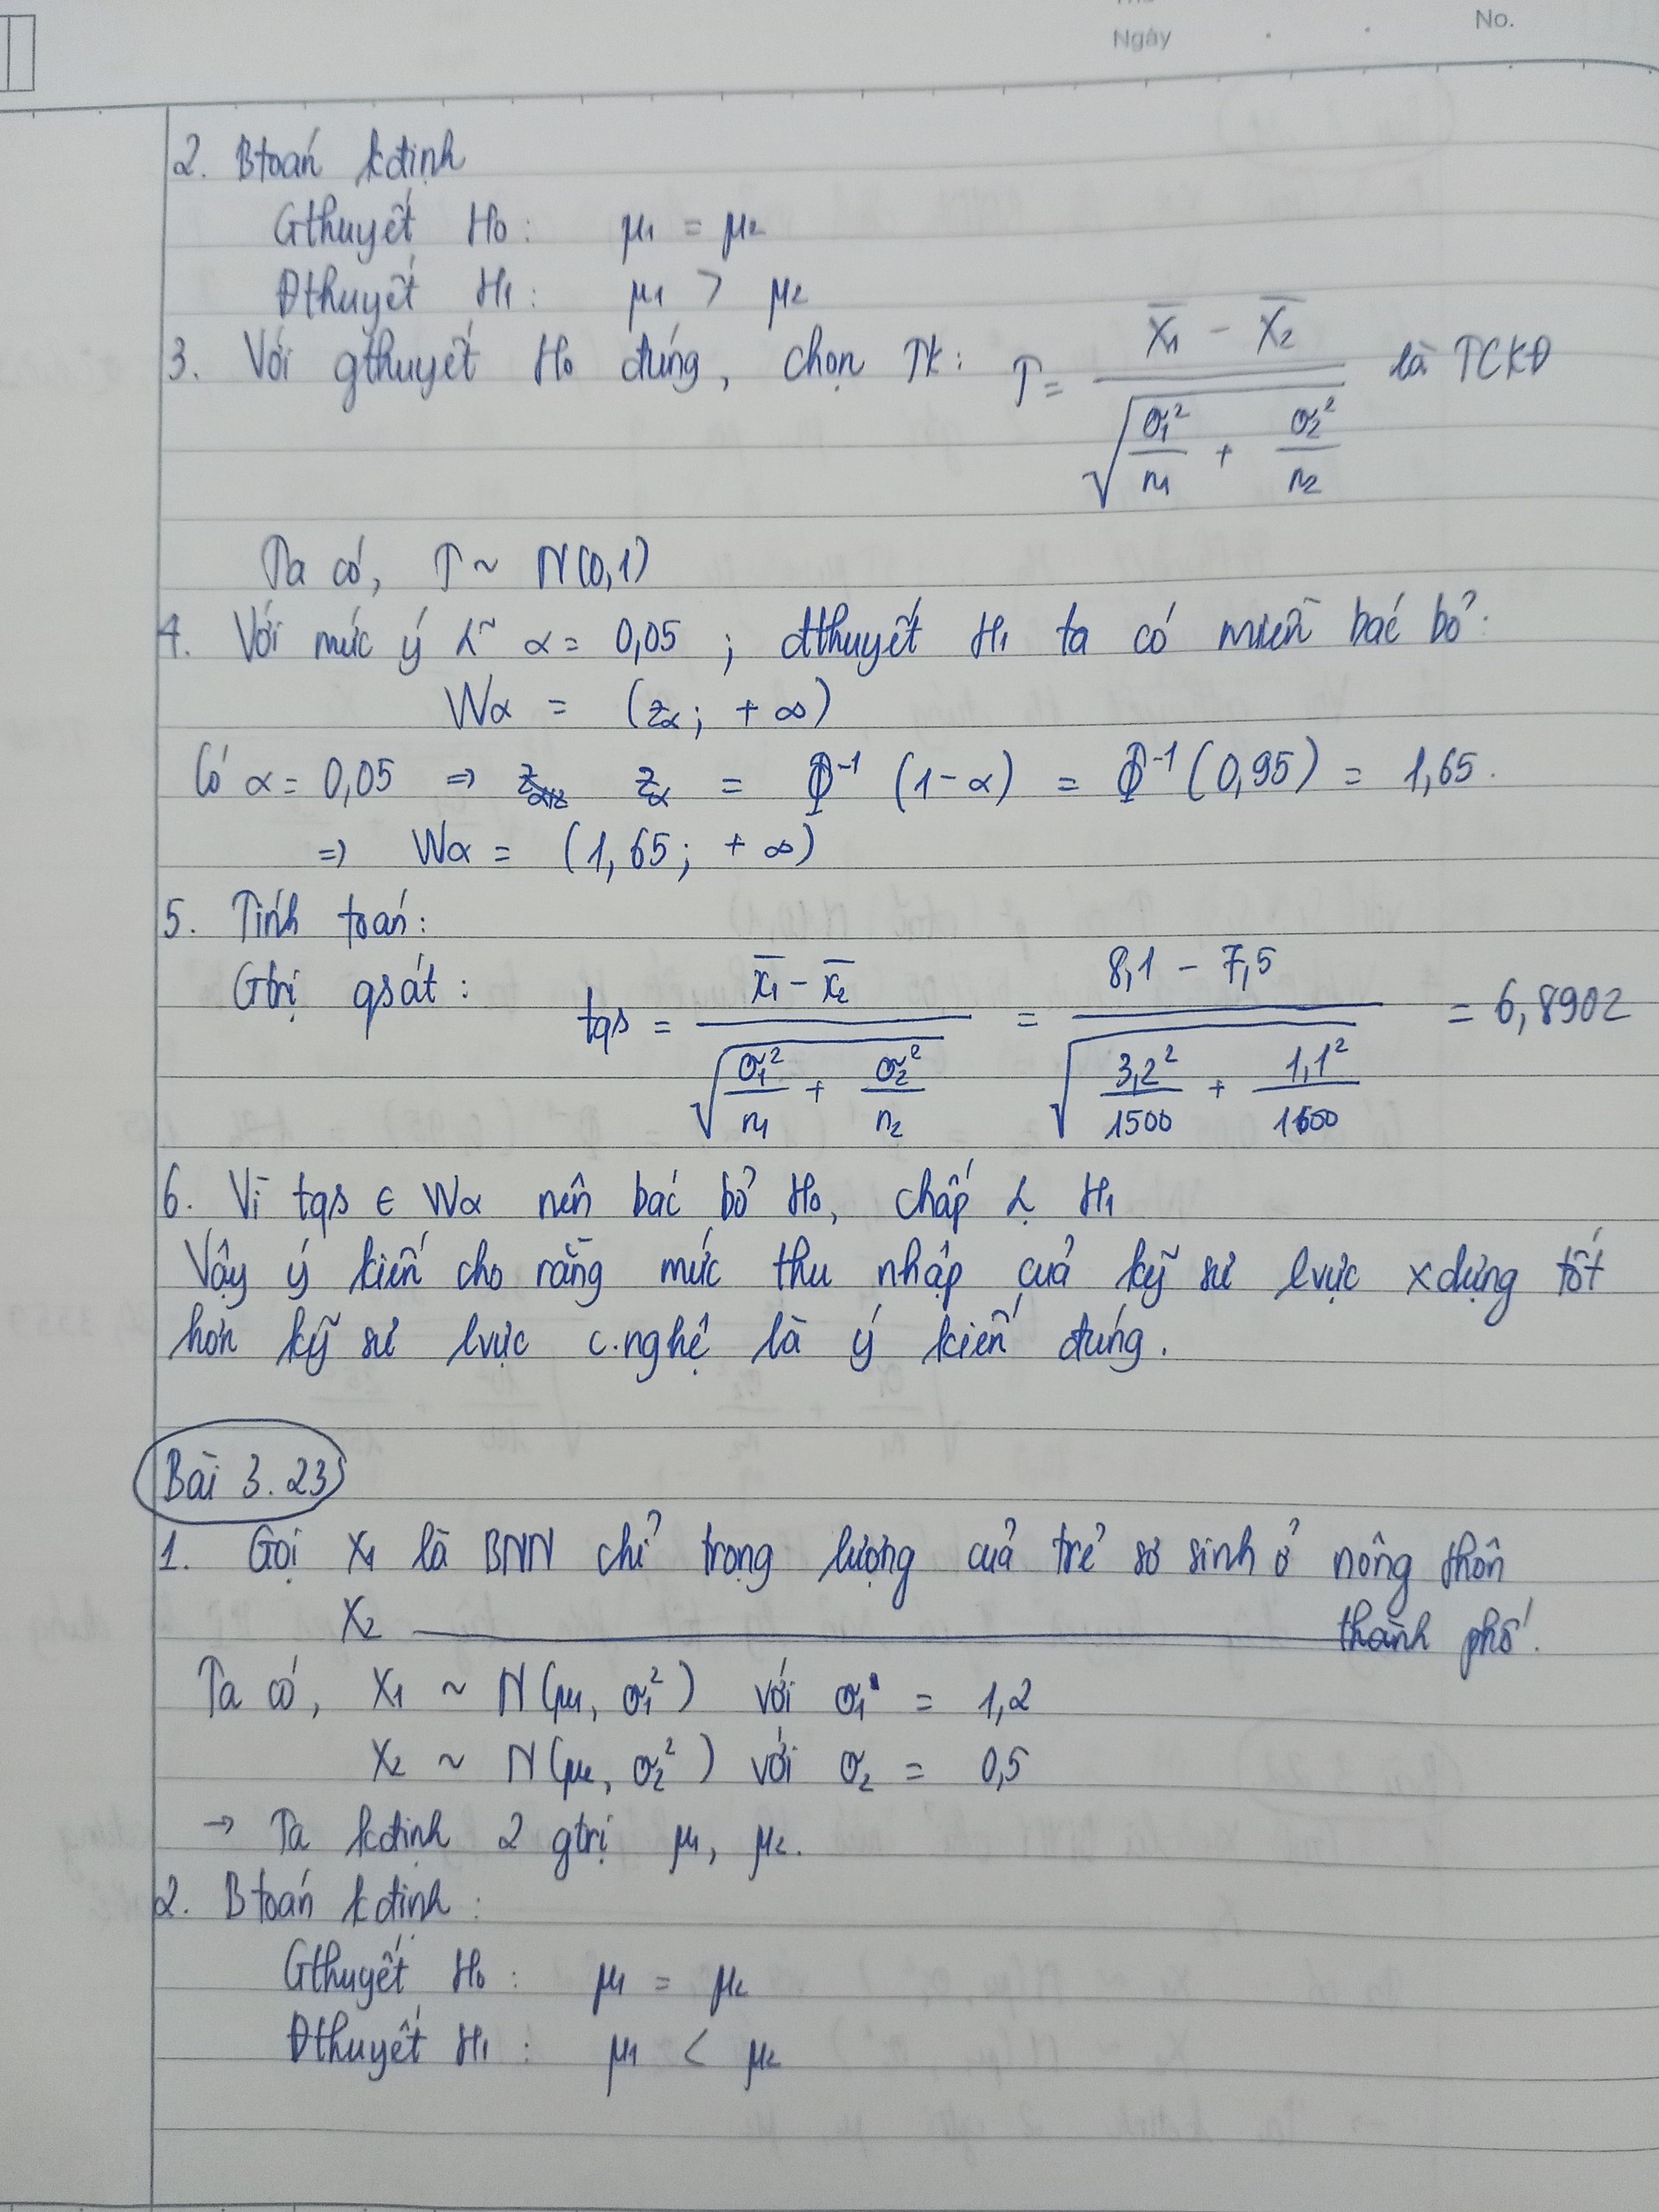 Ngày No.
2. Btoán kđịnh
Gthuyết H₀ : μ₁ = μ₂
Đthuyết H₁ : μ₁ > μ₂
3. Với gthuyết H₀ đúng, chọn TK: T = (X̄₁ - X̄₂) / √(σ₁²/n₁ + σ₂²/n₂) là TCKĐ
Ta có, T ~ N(0,1)
4. Với mức ý α = 0,05 ; đthuyết H₁ ta có miền bác bỏ:
Wα = (zα ; +∞)
Có α = 0,05 => zα = Φ⁻¹ (1-α) = Φ⁻¹ (0,95) = 1,65.
=> Wα = (1,65; +∞)
5. Tính toán:
Gtrị qsát: tqs = (x̄₁ - x̄₂) / √(σ₁²/n₁ + σ₂²/n₂) = (8,1 - 7,5) / √(3,2²/1500 + 1,1²/1600) = 6,8902
6. Vì tqs ∈ Wα nên bác bỏ H₀, chấp H₁
Vậy ý kiến cho rằng mức thu nhập của kỹ sư lvực xdựng tốt
hơn kỹ sư lvực c.nghệ là ý kiến đúng.
Bài 3.23
1. Gọi X₁ là BNN chỉ trọng lượng của trẻ sơ sinh ở nông thôn
X₂ ———— thành phố.
Ta có, X₁ ~ N(μ₁, σ₁²) với σ₁ = 1,2
X₂ ~ N(μ₂, σ₂²) với σ₂ = 0,5
→ Ta kđịnh 2 gtrị μ₁, μ₂.
2. Btoán kđịnh :
Gthuyết H₀ : μ₁ = μ₂
Đthuyết H₁ : μ₁ < μ₂